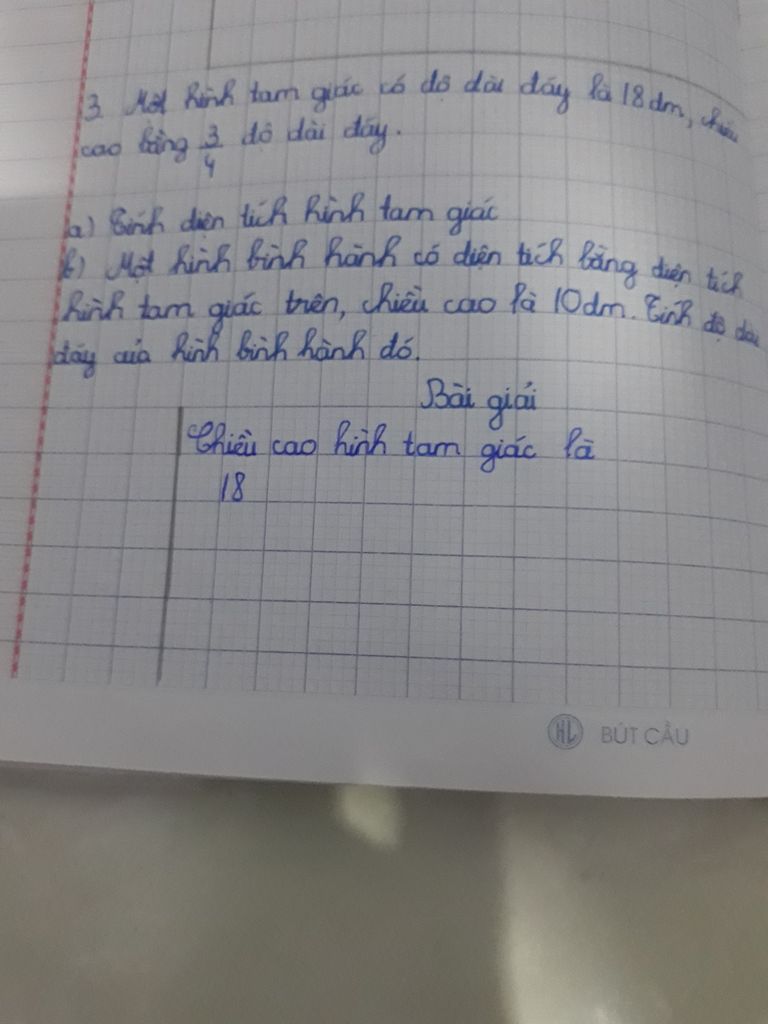 3. Một hình tam giác có độ dài đáy là 18dm, chiều
cao bằng 3/4 độ dài đáy.
a) Tính diện tích hình tam giác
b) Một hình bình hành có diện tích bằng diện tích
hình tam giác trên, chiều cao là 10dm. Tính độ dài
đáy của hình bình hành đó.
Bài giải
Chiều cao hình tam giác là
18
HL BÚT CẦU